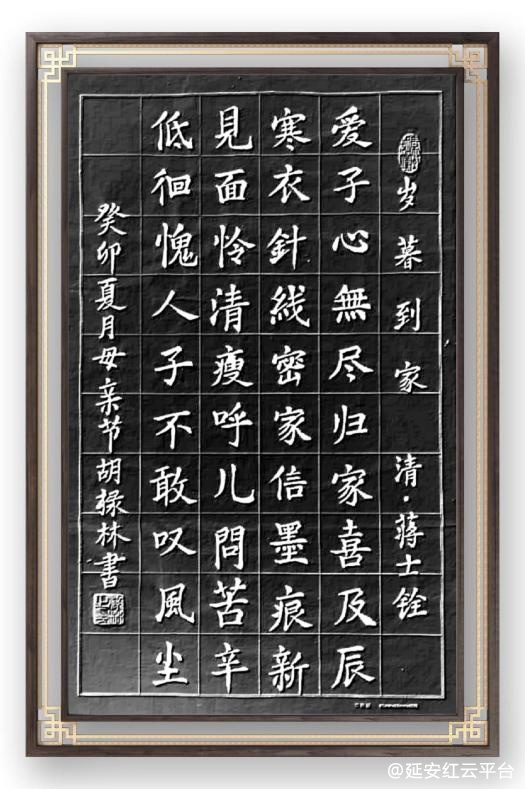 岁暮到家 清·蒋士铨
爱子心無尽归家喜及辰
寒衣針线密家信墨痕新
見面怜清瘦呼儿問苦辛
低徊愧人子不敢叹風尘
癸卯夏月母亲节胡禄林書
@延安红云平台